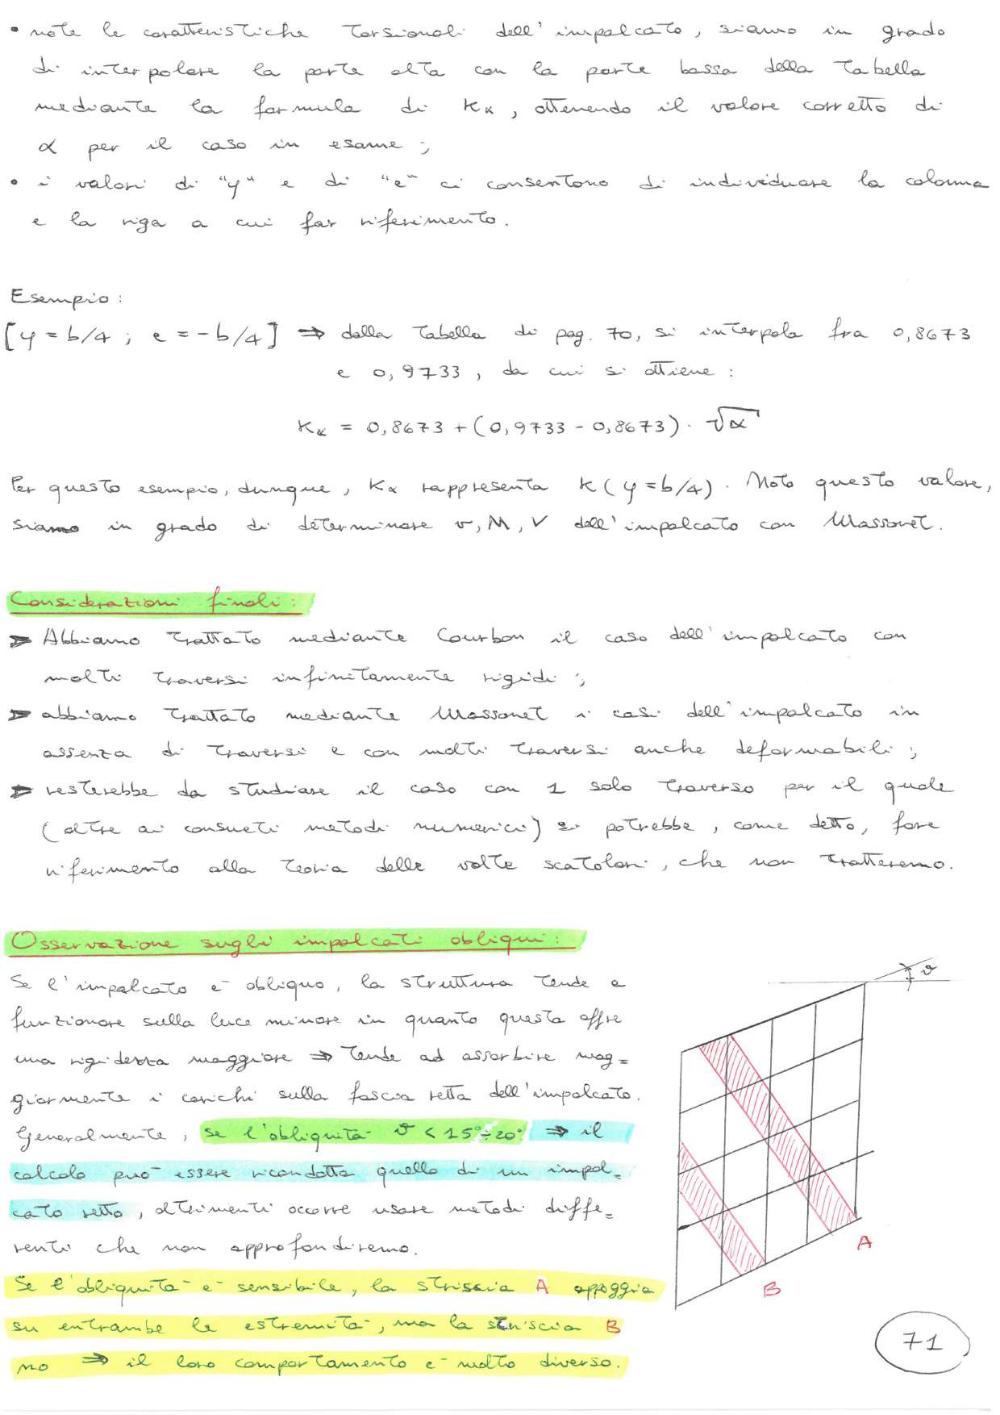 • note le caratteristiche torsionali dell'impalcato, siamo in grado
di interpolare la parte alta con la parte bassa della tabella
mediante la formula di Kα, ottenendo il valore corretto di
α per il caso in esame;
• i valori di "y" e di "e" ci consentono di individuare la colonna
e la riga a cui far riferimento.
Esempio:
[y = b/4 ; e = -b/4] ⇒ dalla tabella di pag. 70, si interpola fra 0,8673
e 0,9733, da cui si ottiene:
Kα = 0,8673 + (0,9733 - 0,8673) · √α
Per questo esempio, dunque, Kα rappresenta K(y = b/4). Noto questo valore,
siamo in grado di determinare v, M, V dell'impalcato con Massonet.
Considerazioni finali:
➢ Abbiamo trattato mediante Courbon il caso dell'impalcato con
molti traversi infinitamente rigidi;
➢ abbiamo trattato mediante Massonet i casi dell'impalcato in
assenza di traversi e con molti traversi anche deformabili;
➢ resterebbe da studiare il caso con 1 solo traverso per il quale
(oltre ai consueti metodi numerici) si potrebbe, come detto, fare
riferimento alla teoria delle volte scatolari, che non tratteremo.
Osservazione sugli impalcati obliqui:
Se l'impalcato è obliquo, la struttura tende a
funzionare sulla luce minore in quanto questa offre
una rigidezza maggiore ⇒ tende ad assorbire mag=
giormente i carichi sulla fascia retta dell'impalcato.
Generalmente, se l'obliquità ϑ < 15°÷20° ⇒ il
calcolo può essere ricondotto quello di un impal=
cato retto, altrimenti occorre usare metodi diffe=
renti che non approfondiremo.
Se l'obliquità è sensibile, la striscia A appoggia
su entrambe le estremità, ma la striscia B
no ⇒ il loro comportamento è molto diverso.
ϑ
A
B
71